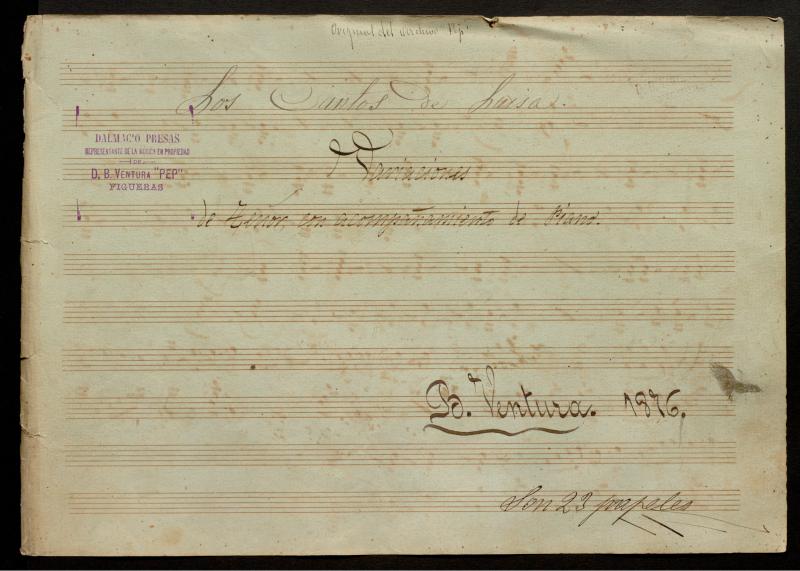 Original del archivo "Pep"
Los Cantos de Luisa.
DALMACIO PRESAS
REPRESENTANTE DE LA MÚSICA EN PROPIEDAD
DE
D. B. VENTURA "PEP"
FIGUERAS
Variaciones
de Tenor, con acompañamiento de Piano.
B. Ventura. 1876.
Son 23 papeles